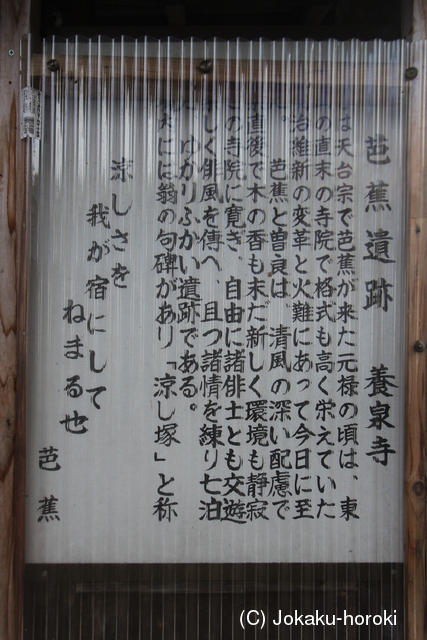 芭蕉遺跡 養泉寺
は天台宗で芭蕉が来た元禄の頃は、東
の直末の寺院で格式も高く栄えていた
治維新の変革と火難にあって今日に至
。芭蕉と曽良は、清風の深い配慮で
直後で木の香も未だ新しく環境も静寂
の寺院に寛ぎ、自由に諸俳士とも交遊
しく俳風を傳へ、且つ諸情を練り七泊
ゆかりぶかい遺跡である。
には翁の句碑があり「涼し塚」と称
涼しさを
我が宿にして
ねまる也
芭蕉
(C) Jokaku-horoki